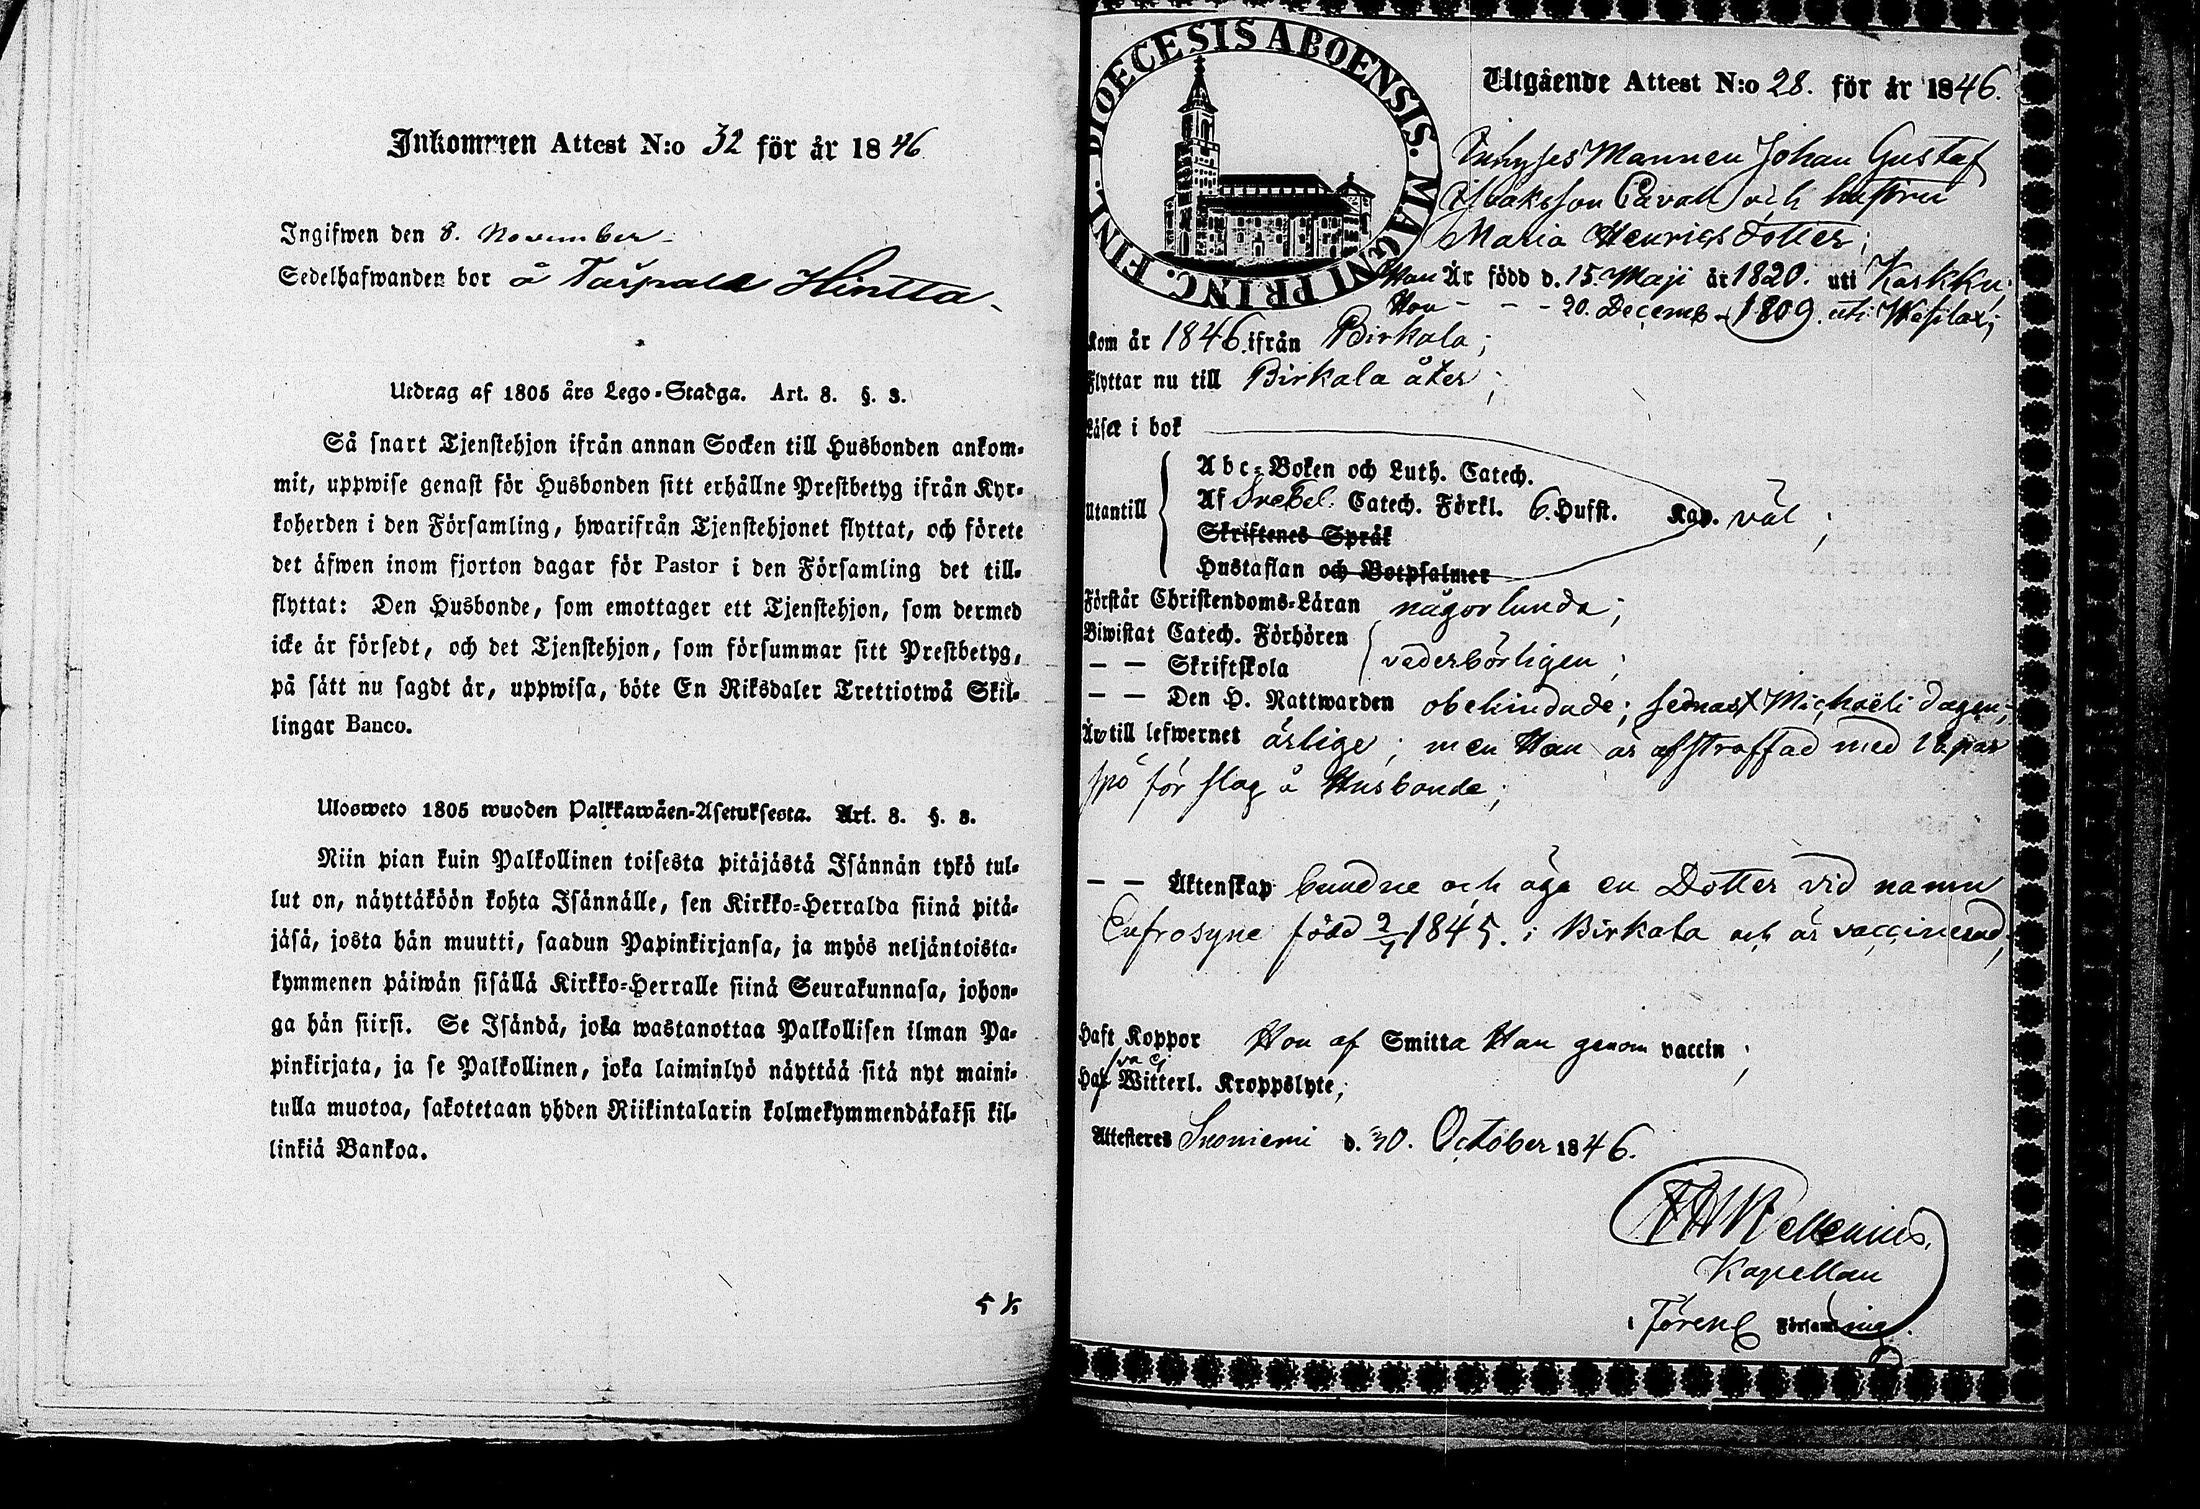 Inkommen Attest N:o 32 för år 1846
Ingifwen den 8. November
Sedelhafwanden bor å Taipale Hintta
Utdrag af 1805 års Lego-Stadga. Art. 8. §. 3.
Så snart Tjenstehjon ifrån annan Socken till Husbonden ankom-
mit, uppwise genast för Husbonden sitt erhållne Prestbetyg ifrån Kyr-
koherden i den Församling, hwarifrån Tjenstehjonet flyttat, och förete
det äfwen inom fjorton dagar för Pastor i den Församling det till-
flyttat: Den Husbonde, som emottager ett Tjenstehjon, som dermed
icke är försedt, och det Tjenstehjon, som försummar sitt Prestbetyg,
på sätt nu sagdt är, uppwisa, böte En Riksdaler Trettiotwå Skil-
lingar Banco.
Ulosweto 1805 wuoden Palkkawäen-Asetuksesta. Art. 8. §. 3.
Niin pian kuin Palkollinen toisesta pitäjästä Isännän tykö tul-
lut on, näyttäköön kohta Isännälle, sen Kirkko-Herralda siinä pitä-
jäsä, josta hän muutti, saadun Papinkirjansa, ja myös neljäntoista-
kymmenen päiwän sisällä Kirkko-Herralle siinä Seurakunnasa, johon-
ga hän siirsi. Se Isändä, joka wastanottaa Palkollisen ilman Pa-
pinkirjata, ja se Palkollinen, joka laiminlyö näyttää sitä nyt maini-
tulla muotoa, sakotetaan yhden Riikintalarin kolmekymmendäkaksi kil-
linkiä Bankoa.
DIOECESIS ABOENSIS. MAGNI PRINC. FINL.
Utgående Attest N:o 28. för år 1846.
Inhyses Mannen Johan Gustaf
Isaksson och hustru
Maria Henrics dotter;
Han Är född d. 15. Maji år 1820. uti Karkku;
Hon - - - 20. Decemb. 1809. uti Wesilax;
Kom år 1846. ifrån Birkala;
Flyttar nu till Birkala åter;
Läser i bok
Utantill
Abc-Boken och Luth. Catech.
Af Svebel. Catech. Förkl. 6. Hufst. Kap. väl;
Skriftenes Språk
Hustaflan och Botpsalmer
Förstår Christendoms-Läran någorlunda;
Biwistat Catech. Förhören
— — Skriftskola vederbörligen;
— — Den H. Nattwarden obehindade; sednast Michaëli dagen;
Är till lefwernet ärlige; men Han är afstraffad med 18 par
spö för slag å Husbonde;
— — Äktenskap bundne och äga en Dotter vid namn
Eufrosyne född 2/1 1845. i Birkala och är vaccinerad,
Haft Koppor Hon af Smitta Han genom vaccin;
Hafva ej Witterl. Kroppslyte;
Attesteres Suoniemi d. 30. October 1846.
Kapellan
i Församling.